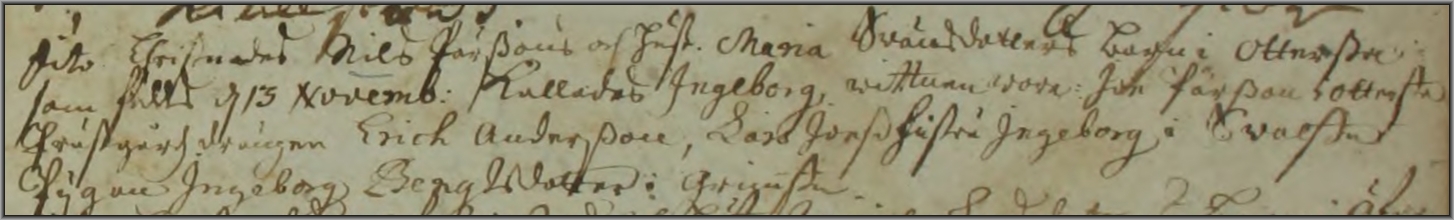 dito Christnades Nils Pärßons och hust. Maria Svänsdotters barn i Otterstn
som föddt d 13 Novemb: Kallades Ingeborg, wittnen wore: Jon Pärßon i Otterstn
Präfstgårds drängen Erich Anderßon, Lars Jonß hustru Ingeborg i
Pigan Ingeborg Bengtsdotter i